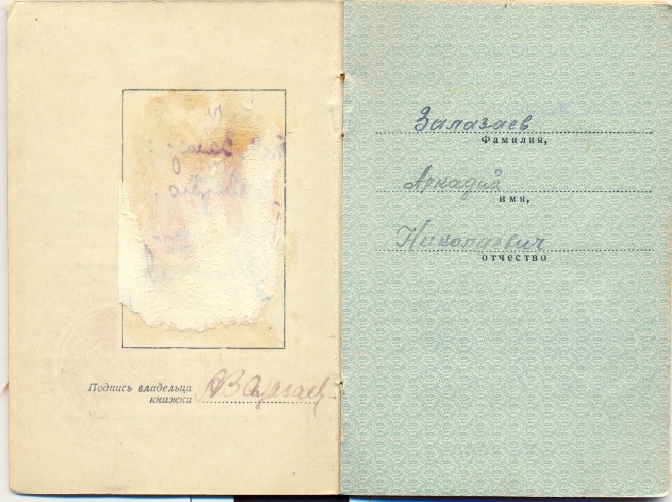 Подпись владельца
книжки
Залазаев
Фамилия,
Аркадий
имя,
Николаевич
отчество